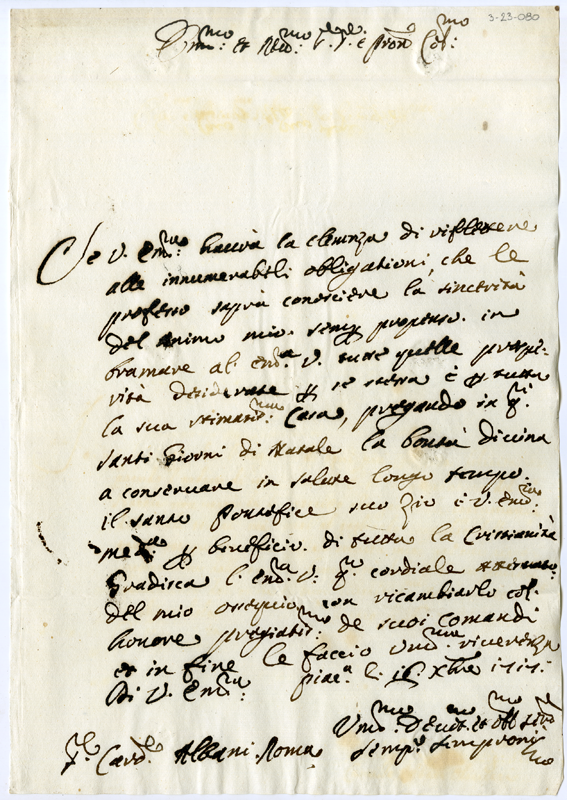 3-23-080
Em:mo et Rev:mo S.r S.r e Pron Col:mo
Se V. Em:za havrà la clemenza di riflettere
alle innumerabili obligationi, che le
professo saprà conoscere la sincerità
del animo mio sempre propenso in
bramare al Em:a V. tutte quelle prospe:
rità desiderate per se stessa è per tutta
la sua stimatis:ma Casa, pregando in q.ti
santi Giorni di Natale la bontà divina
a conservare in salute longo tempo
il santo Pontefice suo Zio è V. Em:za
med:ma per beneficio di tutta la Cristianità
Gradisca l'Em:za V. q.to cordiale
del mio ossequio con ricambiarlo col
honore pregiatis:mo de suoi comandi
et in fine le faccio Um:ma riverenza
Di V. Em:za li 16 Xbre 1717
Um:mo Dev:mo et Obl:mo
S.r Card:le Albani Roma